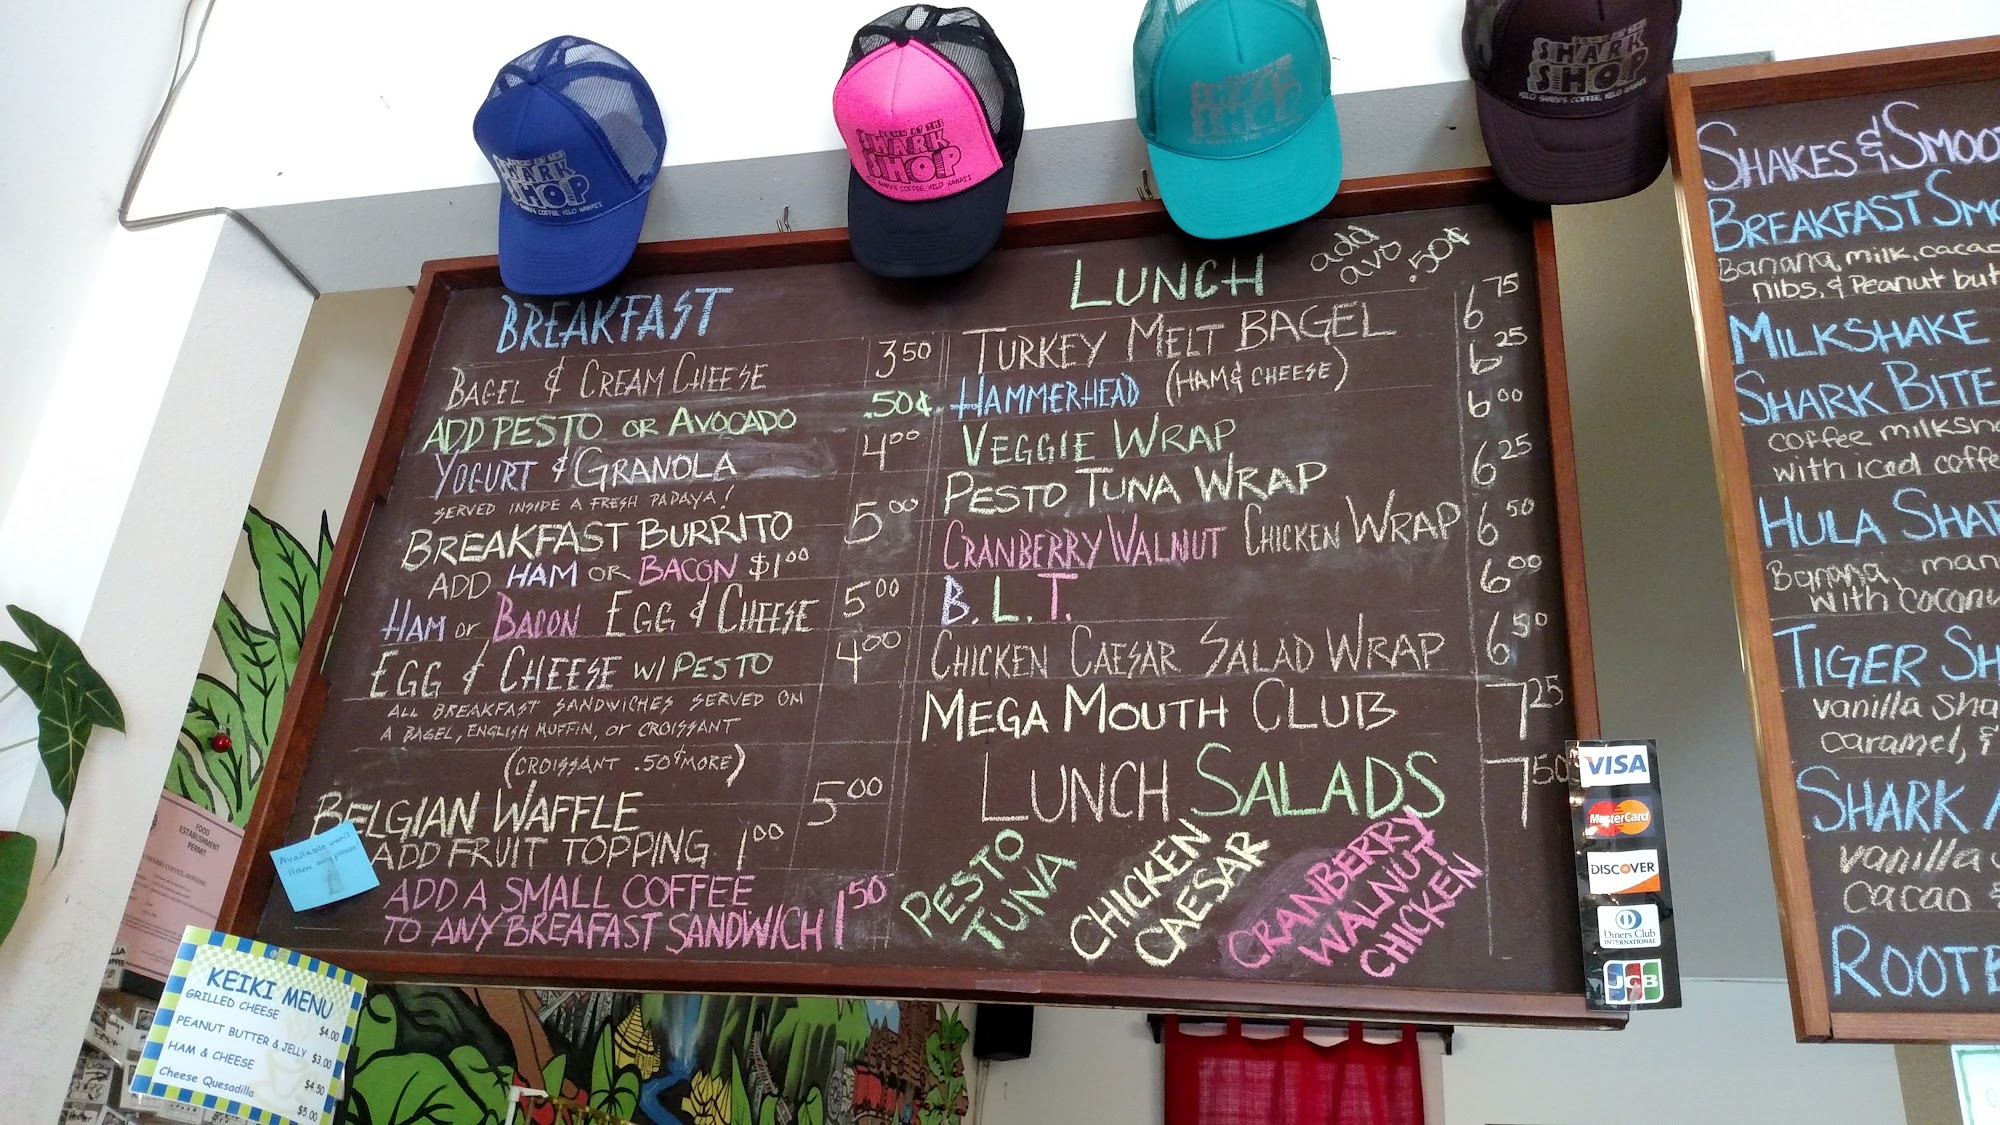 SHARK
SHOP
DOWN AT THE
SHARK
SHOP
HILO SHARK'S COFFEE, HILO HAWAII
SHARK
SHOP
SHARK
SHOP
HILO SHARK'S COFFEE, HILO HAWAII
BREAKFAST
BAGEL & CREAM CHEESE 3 50
ADD PESTO OR AVOCADO .50¢
YOGURT & GRANOLA 4 00
SERVED INSIDE A FRESH PAPAYA!
BREAKFAST BURRITO 5 00
ADD HAM OR BACON $1 00
HAM or BACON EGG & CHEESE 5 00
EGG & CHEESE W/ PESTO 4 00
ALL BREAKFAST SANDWICHES SERVED ON
A BAGEL, ENGLISH MUFFIN, OR CROISSANT
(CROISSANT .50¢ MORE)
BELGIAN WAFFLE 5 00
ADD FRUIT TOPPING 1 00
ADD A SMALL COFFEE
TO ANY BREAFAST SANDWICH 1 50
LUNCH
add
avo .50¢
TURKEY MELT BAGEL 6 75
HAMMERHEAD (HAM & CHEESE) 6 25
VEGGIE WRAP 6 00
PESTO TUNA WRAP 6 25
CRANBERRY WALNUT CHICKEN WRAP 6 50
B.L.T. 6 00
CHICKEN CAESAR SALAD WRAP 6 50
MEGA MOUTH CLUB 7 25
LUNCH SALADS 7 50
PESTO
TUNA
CHICKEN
CAESAR
CRANBERRY
WALNUT
CHICKEN
VISA
MasterCard
DISCOVER
Diners Club
INTERNATIONAL
JCB
SHAKES & SMOO
BREAKFAST SMO
Banana, milk, cacao
nibs, & Peanut but
MILKSHAKE
SHARK BITE
coffee milksha
with iced coffe
HULA SHAR
Banana, man
with coconu
TIGER SH
vanilla sha
caramel, &
SHARK A
vanilla
cacao &
ROOTB
FOOD
ESTABLISHMENT
PERMIT
KEIKI MENU
GRILLED CHEESE $4.00
PEANUT BUTTER & JELLY $3.00
HAM & CHEESE $4.50
Cheese Quesadilla $5.00